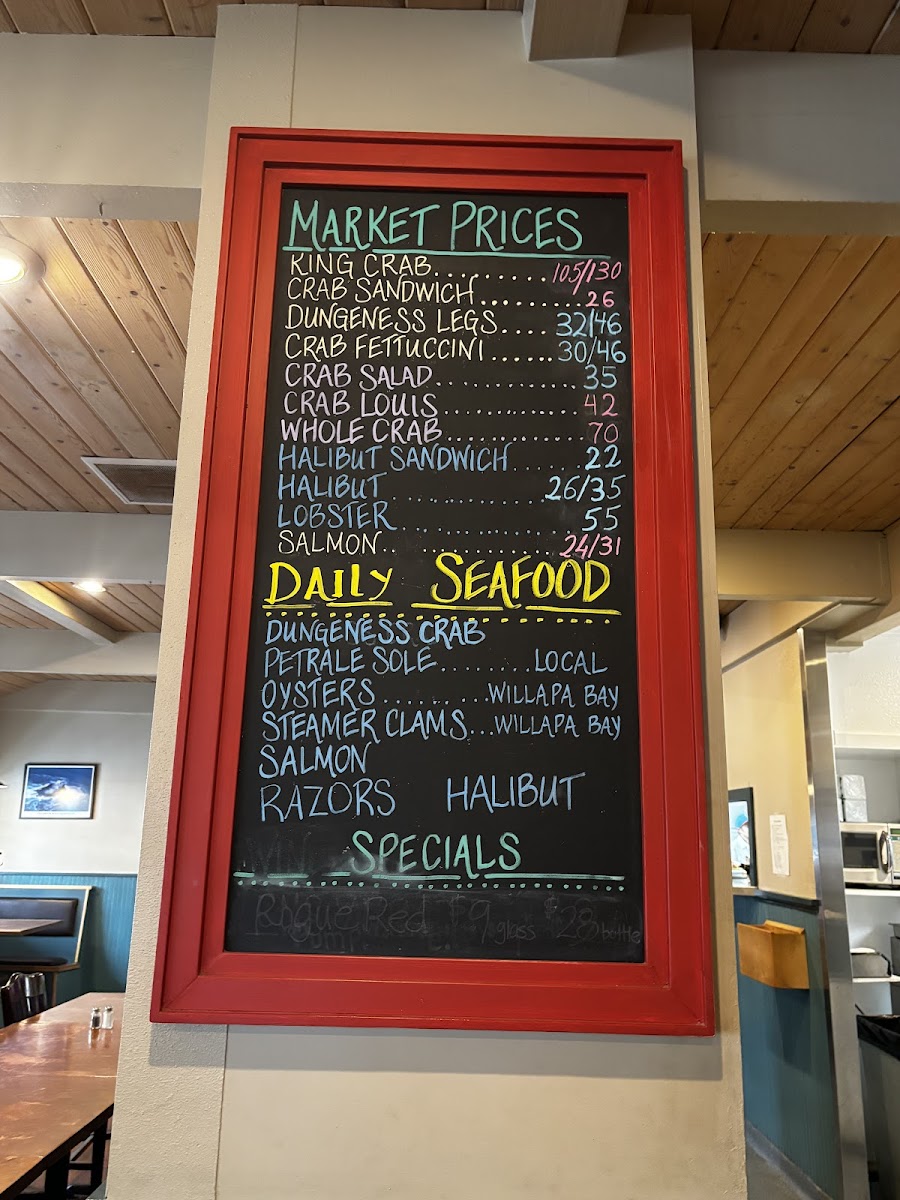 MARKET PRICES
KING CRAB..........105/130
CRAB SANDWICH.........26
DUNGENESS LEGS.....32/46
CRAB FETTUCCINI......30/46
CRAB SALAD...............35
CRAB LOUIS...............42
WHOLE CRAB...............70
HALIBUT SANDWICH.......22
HALIBUT..............26/35
LOBSTER..............55
SALMON..............24/31
DAILY SEAFOOD
DUNGENESS CRAB
PETRALE SOLE.........LOCAL
OYSTERS..........WILLAPA BAY
STEAMER CLAMS...WILLAPA BAY
SALMON
RAZORS HALIBUT
SPECIALS
Rogue Red $9 glass $28 bottle